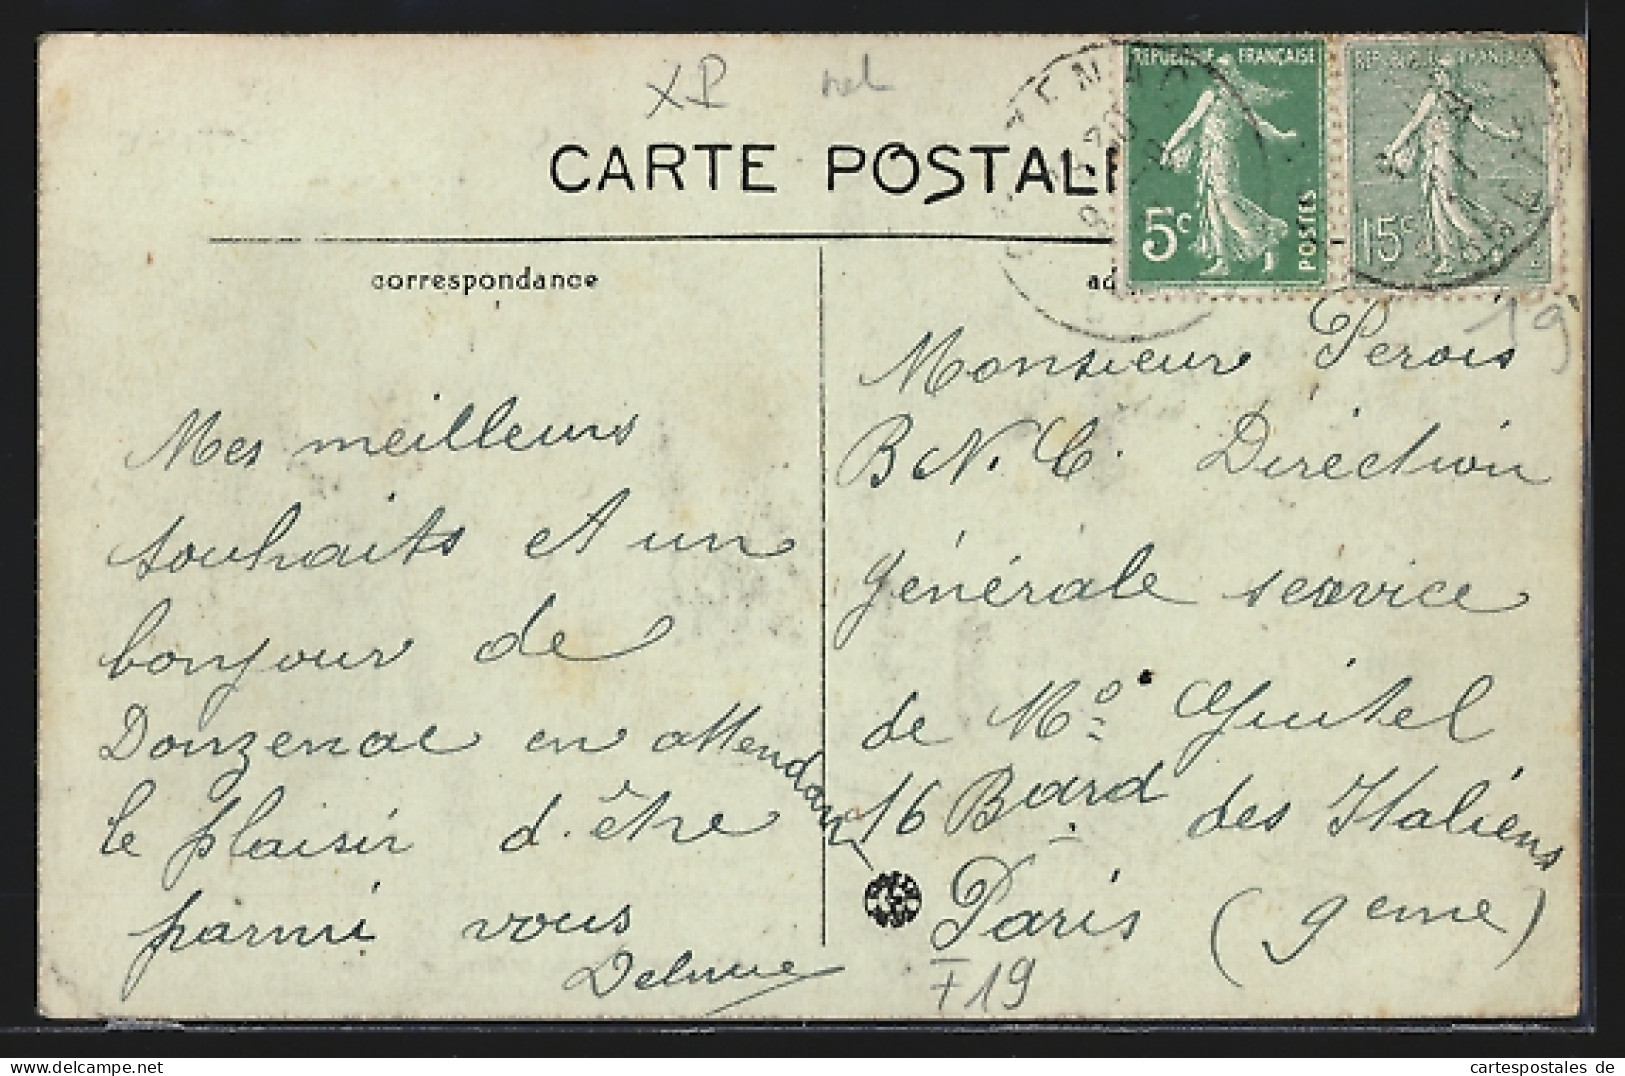 XP
CARTE POSTALE
REPUBLIQUE FRANÇAISE
5c
POSTES
REPUBLIQUE FRANÇAISE
15c
correspondance
Mes meilleurs
souhaits et un
bonjour de
Donzenac en attendant
le plaisir d'être
parmi vous
Monsieur Perois
B.N.C. Direction
générale service
de Mo. Guitel
16 Bard des Italiens
Paris (9eme)
F19
19
cartespostales de